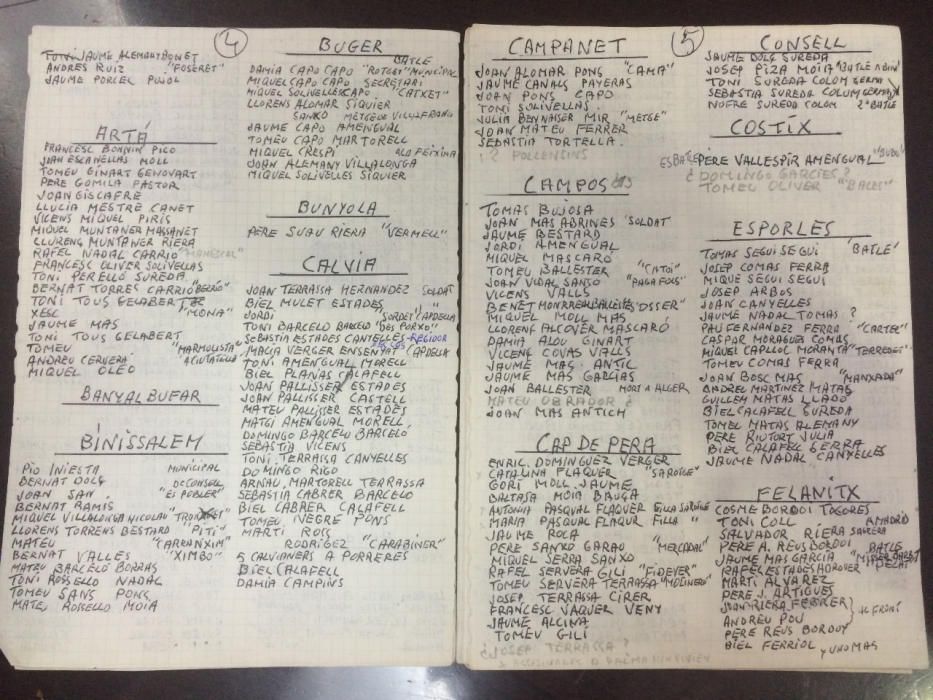 4
TONI JAUME ALEMANY BONET
ANDRES RUIZ "FOSERET"
JAUME PORCEL PUJOL
ARTÁ
FRANCESC BONNIN PICO
JOAN ESCANELLAS MOLL
TOMEU GINART GENOVART
PERE GOMILA PASTOR
JOAN GISCAFRE
LLUCIA MESTRE CANET
VICENS MIQUEL PIRIS
MIQUEL MUNTANER MASSANET
LLURENÇ MUNTANER RIERA
RAFEL NADAL CARRIO MANESCAL
FRANCESC OLIVER SOLIVELLAS
TONI PERELLÓ SUREDA
BERNAT TORRES CARRIO "BERRIO"
TONI TOUS GELABERT
XESC "MONA"
JAUME MAS
TONI TOUS GELABERT
TOMEU "MARMOLISTA"
ANDREU CERVERÁ A CIUTADELLA
MIQUEL OLEO
BANYALBUFAR
BINISSALEM
PIO INIESTA MUNICIPAL
BERNAT DOLÇ DE CONSELL
JOAN SAN "ES POBLER"
BERNAT RAMIS
MIQUEL VILLALONGA NICOLAU
LLORENS TORRENS BESTARD "PITI"
MATEU "CARRANXIN"
BERNAT VALLES "XIMBO"
MATEU BARCELÓ BORRAS
TONI ROSSELLO NADAL
TOMEU SANS PONS
MATEU ROSSELLO MOIA
BUGER
BATLE
DAMIA CAPO CAPO "ROTGET" MUNICIPAL
MIQUEL CAPO CAPO SECRETARI
MIQUEL SOLIVELLES CAPO "CATXET"
LLORENS ALOMAR SIQUIER
SANXO METGE DE VILLAFRANCA
JAUME CAPO AMENGUAL
TOMEU CAPO MARTORELL
MIQUEL CRESPI ALO FEIXINA
JOAN ALEMANY VILLALONGA
MIQUEL SOLIVELLES SIQUIER
BUNYOLA
PERE SUAU RIERA "VERMELL"
CALVIA
JOAN TERRASSA HERNANDEZ SOLDAT
BIEL MULET ESTADES
JORDI "SORDET" CAPDELLA
TONI BARCELO BARCELO "DES PORXO"
SEBASTIA ESTADES CANYELLES - REGIDOR
MACIA VERGER ENSENYAT CAPDELLA
TONI AMENGUAL MORELL
BIEL PLANAS CALAFELL
JOAN PALLISSER ESTADES
JOAN PALLISSER CASTELL
MATEU PALLISSER ESTADES
MATGI AMENGUAL MORELL
DOMINGO BARCELO BARCELÓ
SEBASTIA VICENS
TONI TERRASSA CANYELLES
DOMINGO RIGO
ARNAU MARTORELL TERRASSA
SEBASTIA CABRER BARCELO
BIEL CABRER CALAFELL
TOMEU NEGRE PONS
MARTI ROIG
RODRIGEZ "CARABINER"
5 CALVIANERS A PORRERES
BIEL CALAFELL
DAMIA CAMPINS
5
CAMPANET
JOAN ALOMAR PONS "CAMA"
JAUME CANALS PAYERAS
JOAN PONS CAPO
TONI SOLIVELLAS
JULIA BENNAISER MIR "METGE"
JOAN MATEU FERRER
SEBASTIA TORTELLA
? POLLENSINS
CAMPOS
TOMAS BUJOSA
JOAN MAS ABRINES "SOLDAT"
JAUME BESTARD
JORDI AMENGUAL
MIQUEL MASCARÓ
TOMEU BALLESTER "CATOI"
JOAN VIDAL SANSO "PAGA FOLS"
VICENS VALLS
BENET MONRREAL BALLESTE "OSSER"
MIQUEL MOLL MAS
LLORENS ALCOVER MASCARÓ
DAMIA ALOU GINART
VICENÇ COVAS VALLS
JAUME MAS ANTIC
JAUME MAS GARCIAS
JOAN BALLESTER MORT A ALGER
MATEU OBRADOR ?
JOAN MAS ANTICH
CAP DE PERA
ENRIC DOMINGUEZ VERGER
CATALINA FLAQUER "SARDIGE"
GORI MOLL JAUME
BALTASA MOIA BAUGA
ANTONIA PASQUAL FLAQUER FILLA SARDIGE
MARIA PASQUAL FLAQUR FILLA "
JAUME ROCA
PERE SANXO GARAU "MERCADAL"
MIQUEL SERRA SANXO
RAFEL SERVERA GILI "FIDEVER"
TOMEU SERVERA TERRASSA "MOLINERO"
JOSEP TERRASSA CIRER
FRANCESC VAQUER VENY
JAUME ALCINA
TOMEU GILI
¿ JOSEP TERRASSA ?
CONSELL
JAUME DOLÇ SUREDA
JOSEP PIZA MOIA "BATLE A BINI"
TONI SUREDA COLOM GERMA
SEBASTIA SUREDA COLUM GERMA
NOFRE SUREDA COLOM 2º BATLE
COSTÍX
ES BATLE PERE VALLESPIR AMENGUAL "BUBO"
¿ DOMINGO GARCIES ?
TOMEU OLIVER "BALES"
ESPORLES
TOMAS SEGUI SEGUI "BATLE"
JOSEP COMAS FERRA
MIQUE SEGUI SEGUI
JOSEP ARBOS
JOAN CANYELLES
JAUME NADAL TOMAS ?
PAU FERNANDEZ FERRA "CARTER"
CASPAR MORAGUES COMAS
MIQUEL CAPLLOL MORANTA "TERREDET"
TOMEU COMAS FERRA
JOAN BOSC MAS "MANXADA"
ANDREU MARTINEZ MATAS
GUILLEM MATAS LLADO
BIEL CALAFELL SUREDA
TOMEU MATAS ALEMANY
PERE RIUTORT JULIA
BIEL CALAFELL SERRA
JAUME NADAL CANYELLES
FELANITX
COSME BORDOI TOGORES
TONI COLL A MADRID
SALVADOR RIERA SABTERA
PERE A. REUS BORDOI BATLE
JAUME MAS GARCIA
RAFAEL ESTADES ADROVER
MARTI ALVAREZ
PERE J. ARTIGUES
JOAN RIERA FERRER
ANDREU POU AL FRONT
PERE REUS BORDOY
BIEL FERRIOL Y UNO MAS